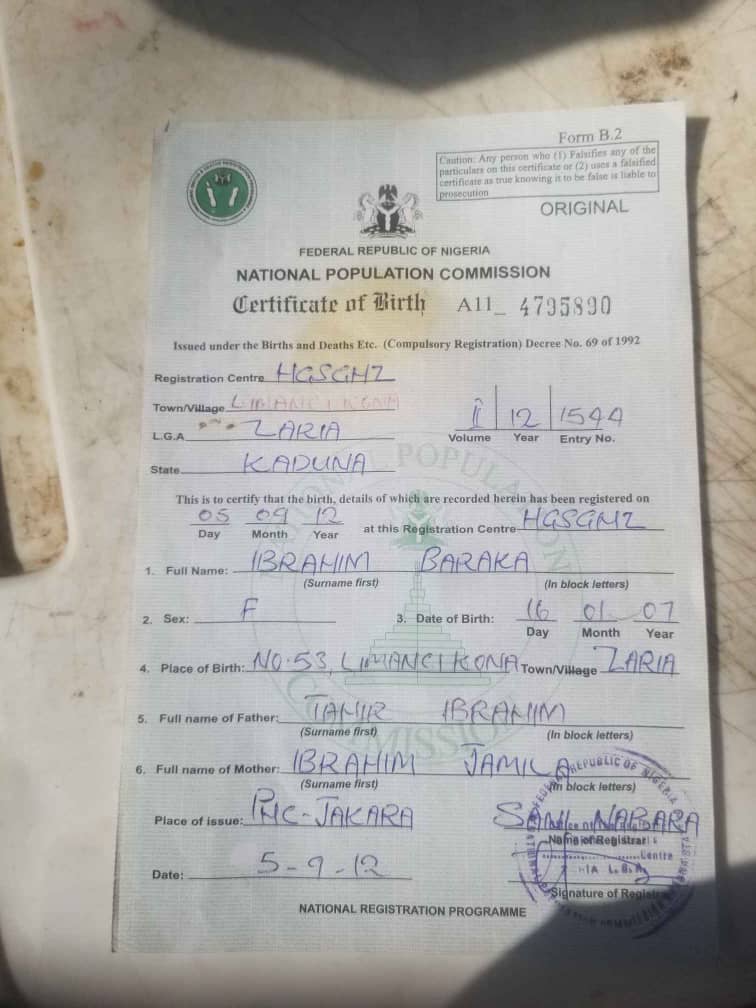 Form B.2
Caution: Any person who (1) Falsifies any of the
particulars on this certificate or (2) uses a falsified
certificate as true knowing it to be false is liable to
prosecution
ORIGINAL
FEDERAL REPUBLIC OF NIGERIA
NATIONAL POPULATION COMMISSION
Certificate of Birth A11_ 4795890
Issued under the Births and Deaths Etc. (Compulsory Registration) Decree No. 69 of 1992
Registration Centre HGSGMZ
Town/Village
L.G.A ZARIA
I 12 1544
Volume Year Entry No.
State KADUNA
This is to certify that the birth, details of which are recorded herein has been registered on
05 09 12 at this Registration Centre HGSGMZ
Day Month Year
1. Full Name: IBRAHIM BARAKA
(Surname first) (In block letters)
2. Sex: F 3. Date of Birth: 16 01 07
Day Month Year
4. Place of Birth: NO. 53, LIMANCI KONA Town/Village ZARIA
5. Full name of Father: TAHIR IBRAHIM
(Surname first) (In block letters)
6. Full name of Mother: IBRAHIM JAMILA
(Surname first) (In block letters)
Place of issue: PHC-JAKARA
Name of Registrar
Date: 5-9-12
Signature of Registrar
NATIONAL REGISTRATION PROGRAMME